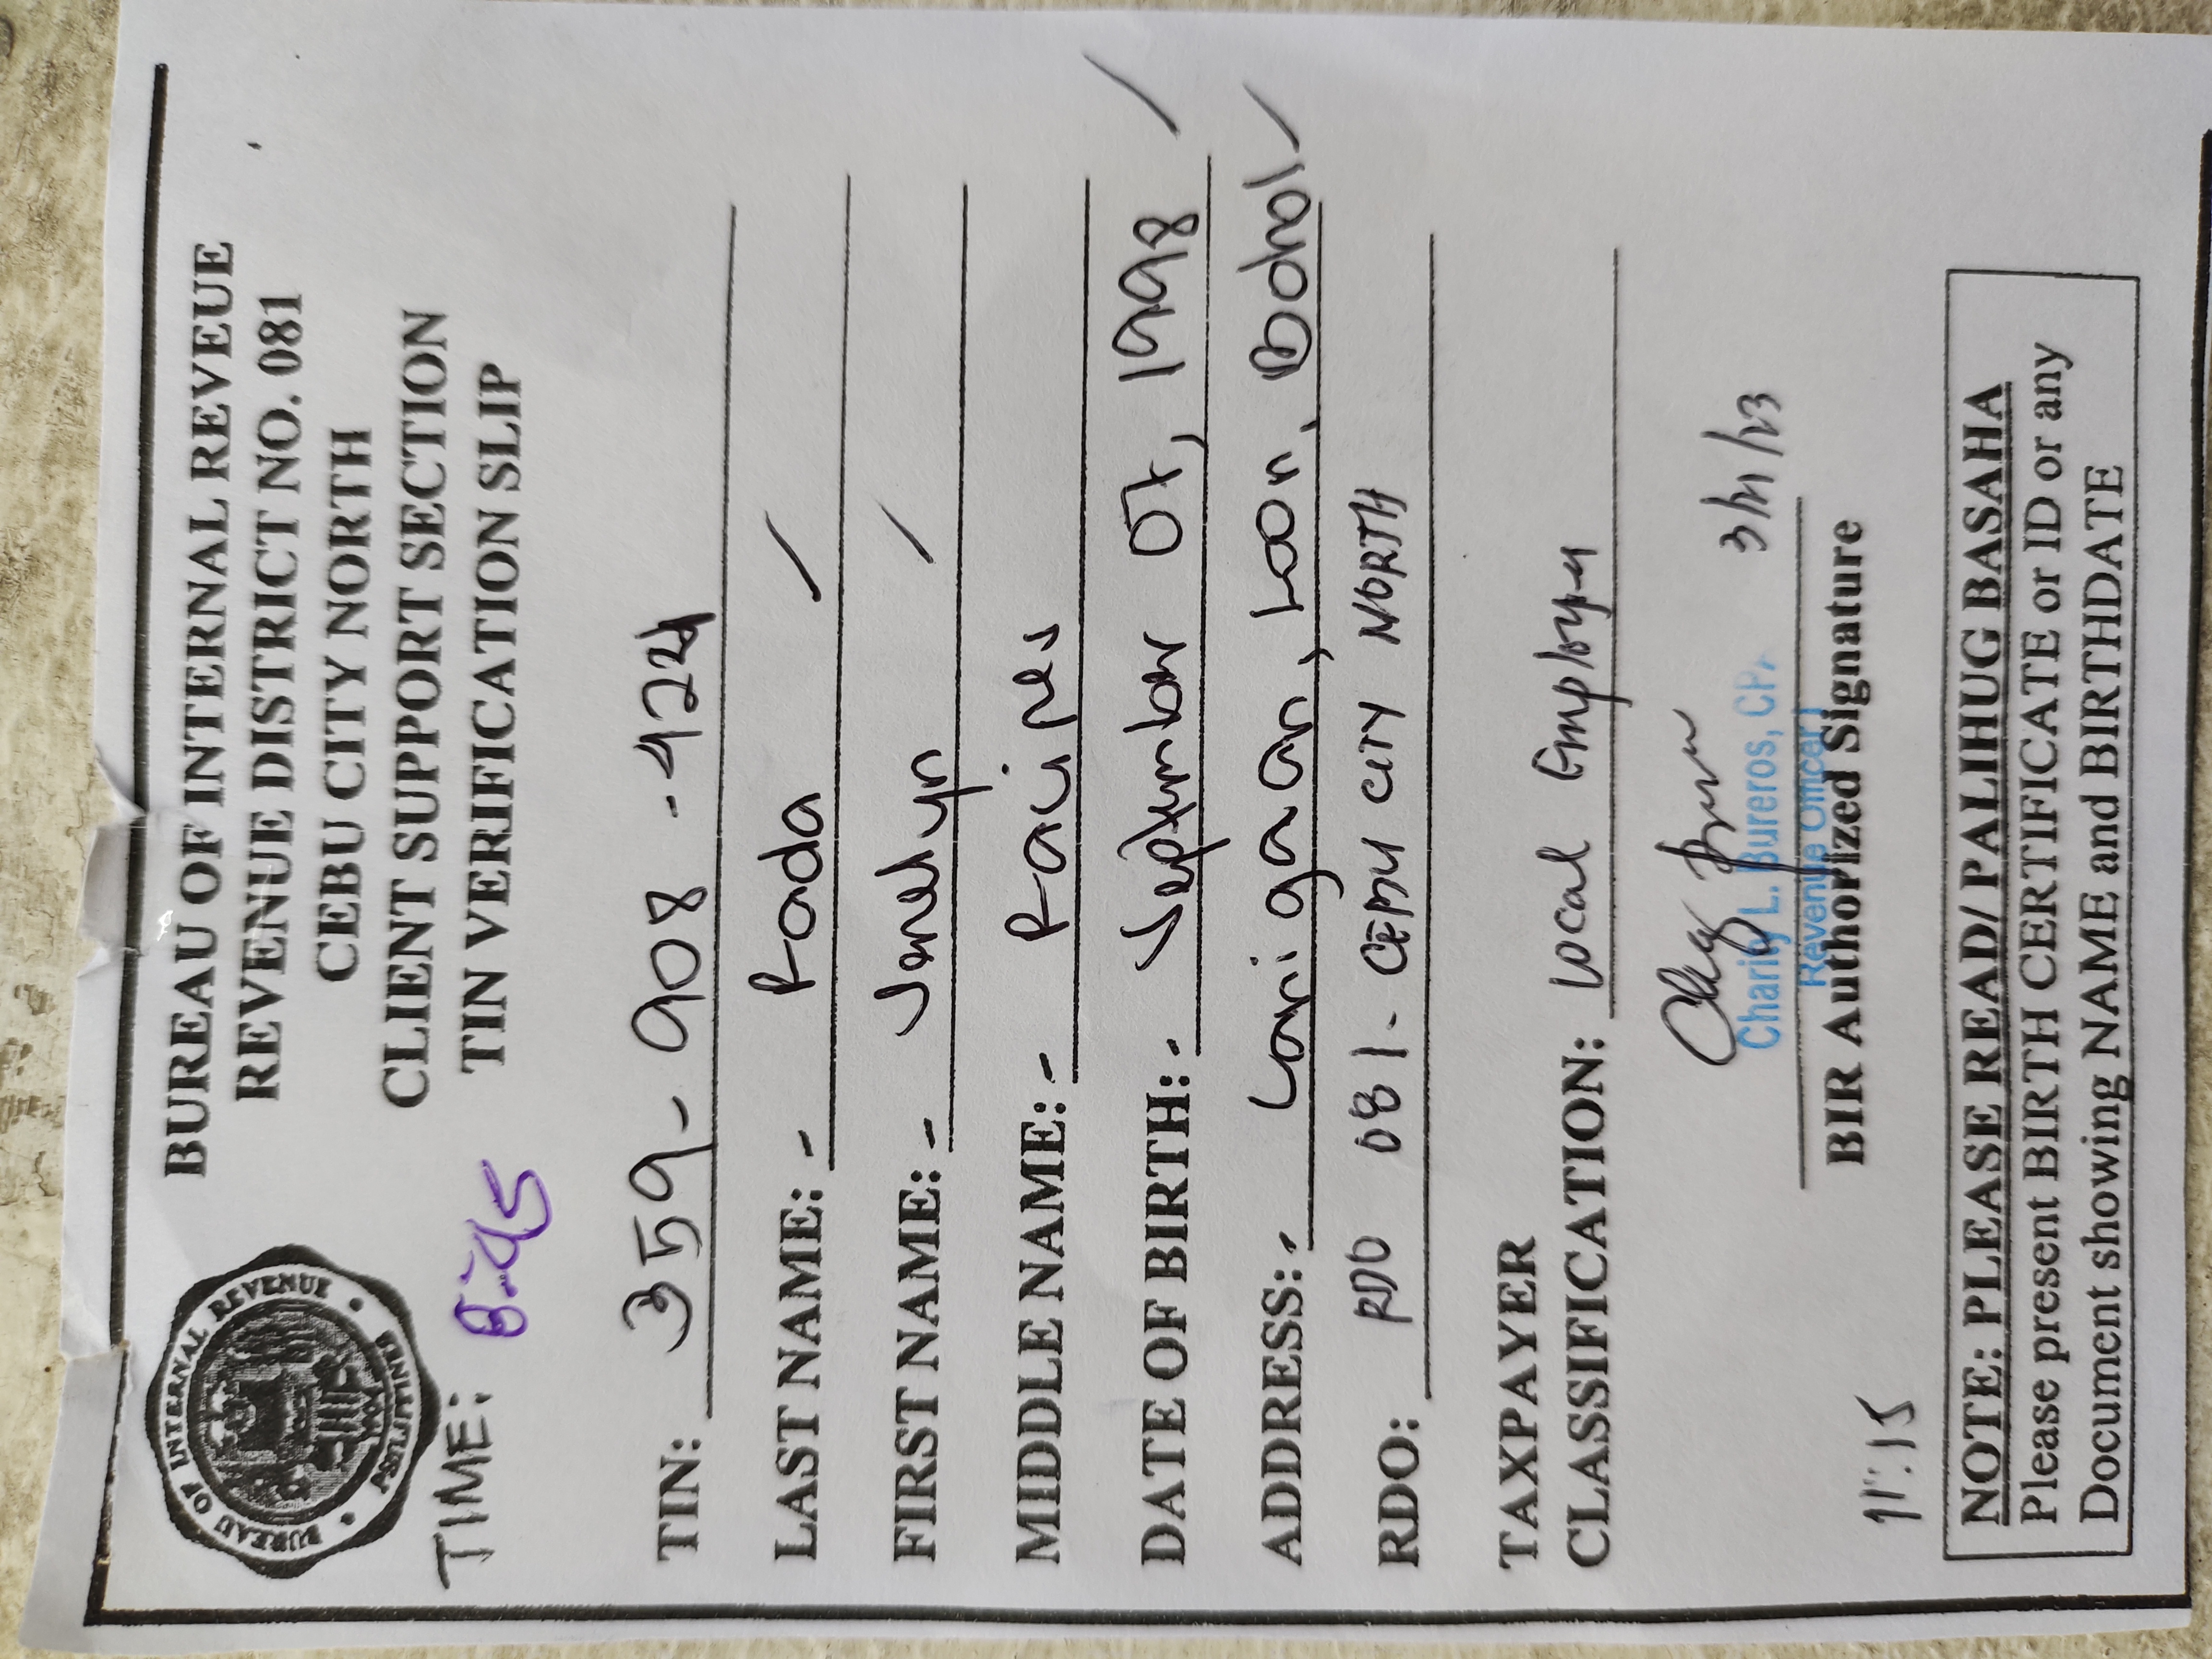 BUREAU OF INTERNAL REVEUE
REVENUE DISTRICT NO. 081
CEBU CITY NORTH
CLIENT SUPPORT SECTION
TIN VERIFICATION SLIP
BUREAU OF INTERNAL REVENUE
PHILIPPINES
TIME: 8:45
TIN: 359-908-424
LAST NAME: - Rada
FIRST NAME: - Jemelyn
MIDDLE NAME: -
DATE OF BIRTH: - September 07, 1998
ADDRESS: - Loon, Bohol
RDO: RDO 081 - CEBU CITY NORTH
TAXPAYER
CLASSIFICATION: Local Employee
Charity L. Bureros, CPA
Revenue Officer I
BIR Authorized Signature
NOTE: PLEASE READ/ PALIHUG BASAHA
Please present BIRTH CERTIFICATE or ID or any
Document showing NAME and BIRTHDATE